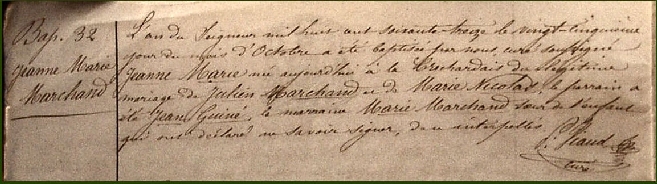 Bap. 32
Jeanne Marie
Marchand
L'an du Seigneur mil huit cent soixante-treize le vingt-cinquième
jour du mois d'Octobre a été baptisée par nous curé soussigné
Jeanne Marie née aujourd'hui à la du légitime
mariage de Julien Marchand et de Marie Nicolas, le parrain a
été Jean Guiné, la marraine Marie Marchand sœur de l'enfant
qui ont déclaré ne savoir signer, de ce interpellés
curé